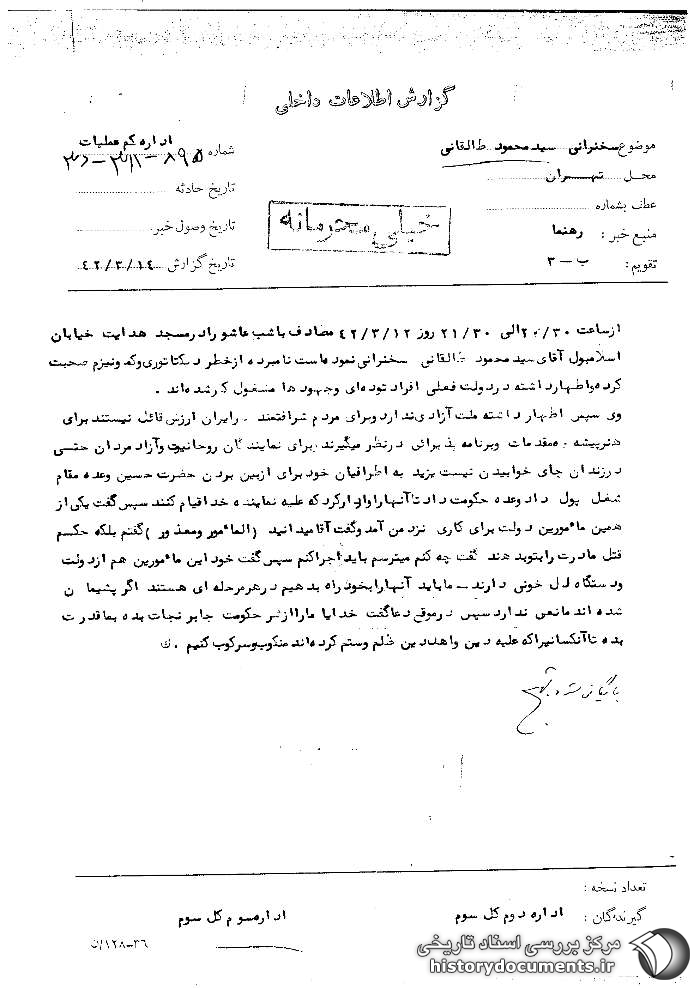 گزارش اطلاعات داخلی
موضوع سخنرانی سید محمود طالقانی
محل تهران
عطف بشماره
منبع خبر : رهنما
تقویم : ب – ۳
اداره کم عملیات
شماره
تاریخ حادثه
تاریخ وصول خبر
تاریخ گزارش ۴۲/۳/۱۴
خیلی محرمانه
از ساعت ۲۰/۳۰ الی ۲۱/۳۰ روز ۴۲/۳/۱۲ مصادف با شب عاشورا در مسجد هدایت خیابان
اسلامبول آقای سید محمود طالقانی سخنرانی نموده است نامبرده از خطر دیکتاتوری و کمونیزم صحبت
کرده و اظهار داشته در دولت فعلی افراد توده‌ای و جهودها مشغول کار شده‌اند .
وی سپس اظهار داشته ملت آزادی ندارد و برای مردم شرافتمند . در ایران ارزش قائل نیستند برای
هنرپیشه ها مقدمات و برنامه پذیرائی در نظر میگیرند برای نمایندگان روحانیت و آزادمردان حتی
در زندان جای خوابیدن نیست یزید به اطرافیان خود برای از بین بردن حضرت حسین وعده مقام
شغل پول داد و وعده حکومت داد تا آنها را وادار کرد که علیه نماینده خدا قیام کنند سپس گفت یکی از
همین مأمورین دولت برای کاری نزد من آمد و گفت آقا میدانید (المأمور و معذور) گفتم بلکه حکم
قتل مادرت را بتو بدهند گفت چه کنم میترسم باید اجرا کنم سپس گفت خود این مأمورین هم از دولت
و دستگاه دل خونی دارند – ما باید آنها را بخود راه بدهیم در هر مرحله ای هستند اگر پشیمان
شده اند مانعی ندارد سپس در موقع دعا گفت خدایا ما را از شر حکومت جابر نجات بده بما قدرت
بده تا آنکسانیرا که علیه دین و اهل دین ظلم و ستم کرده‌اند منکوب و سرکوب کنیم . ک
بایگانی شود
تعداد نسخه :
گیرندگان : اداره دوم کل سوم
اداره سوم کل سوم
۱۲۸-۳۶/ن
مرکز بررسی اسناد تاریخی
historydocuments.ir